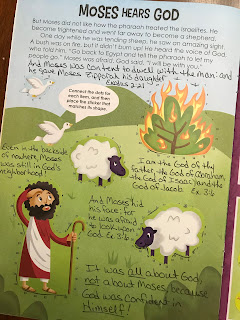 MOSES HEARS GOD
But Moses did not like how the pharaoh treated the Israelites. He
became frightened and went far away to become a shepherd.
One day while he was tending sheep, he saw an amazing sight.
A bush was on fire, but it didn't burn up! He heard the voice of God,
who told him, "Go back to Egypt and tell the pharaoh to let my
people go." Moses was afraid. God said, "I will be with you."
And Moses was content to dwell with the man: and
he gave Moses Zipporah his daughter.
Exodus 2:21
Connect the dots for
each item, and then
place the sticker that
matches its shape.
Even in the backside
of nowhere, Moses
was still in God's
neighborhood!
I am the God of thy
father, the God of Abraham,
the God of Isaac, and the
God of Jacob. Ex. 3:6
And Moses hid
his face; for
he was afraid
to look upon
God. Ex. 3:6
It was all about God,
not about Moses, because
God was confident in
Himself!